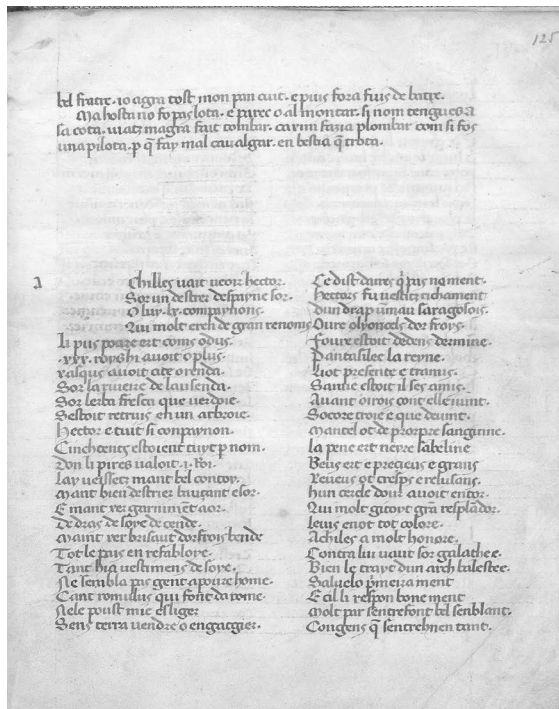 125
bel fratre. io agra tost mon pan cuit. e puis fora fius de batre.
Ma hosta no fo pas lota. e parec o al montar. si nom tengues a
sa cota. viatz magra fait tombar. car im faria plombar com si fos
una pilota. p q fay mal cavalgar. en bestia q trota.
a
Chilles vait veoir hector.
Sor un destrer despayne sor.
O luy. lx. compaynons.
Qui molt ereh de gran renoms
li pus poare ert coms o dus.
xxx. roys hi avoit o plus.
Sor la riveire de lausenda.
Sor lerba fresca que verdoie.
Sestoit retruis en un arbroie.
Hector e tuit si conpaynon.
Cinchcents estoient tuyt p nom.
Don li pires valoit .i. Roi.
Lay veissetz mant bel conroy.
Mant bien destrier bauçant e sor.
E mant ver garnimēt a or.
De dras de soye de cende.
Maint ver brisaut dorfrois bende
Tot le pais en
Tant hia vestimens de soye.
Ne sembla pas gent a povre home.
Cant romulus qui fonda rome.
Nele poust mie esliger
Sens terra vendre o engatgier.
Ce dist daires q pas no ment.
Hectors fu vestitz richament
dun drap saragosois.
Ovre olyoncels dor froys.
Foure estoit dedens dermine.
Pantasilee la reyne.
Liot presente e tramis.
Sanue estoit il ses amis.
Avant oirois cont elle vint.
Socore troie e que devint.
Mantel ot de prorpre sanguine.
la pene ert neyre sabeline
Beus ert e precieus e grans
hun cercle dour avoit entor.
Qui molt gitoyt grā resplādor.
leuis enot tot colore.
Achiles a molt honore.
Contra lui vait sor galathee.
Bien le trayt dun arch balestee.
Saluelo pmeira ment
E cil li respon bone ment
Molt par sentrefont bel senblant.
Congens q sentrehnen tant.